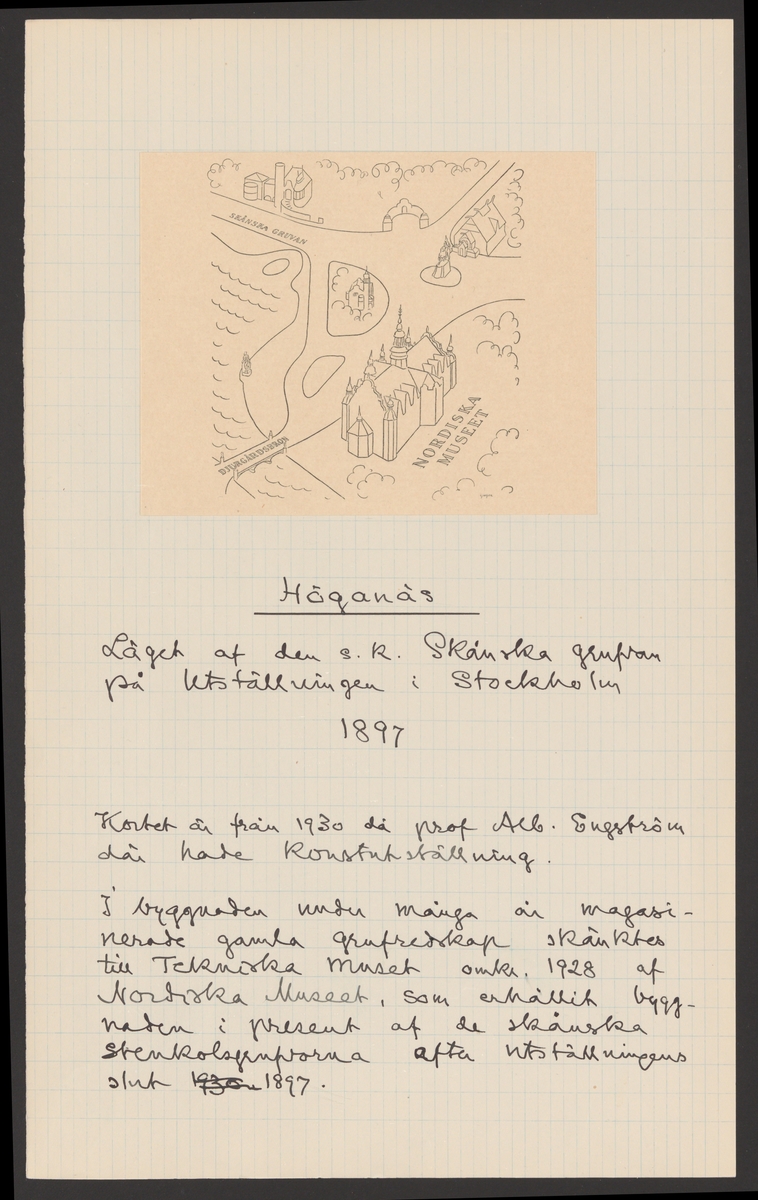 SKÅNSKA GRUVAN
DJURGÅRDSBRON
NORDISKA
MUSEET
Höganäs
Läget af den s.k. Skånska grufvan
på Utställningen i Stockholm
1897
Kortet är från 1930 då prof Alb. Engström
där hade Konstutställning.
I byggnaden under många år magasi-
nerade gamla grufredskap skänktes
till Tekniska Muset omkr. 1928 af
Nordiska Museet, som erhållit bygg-
naden i present af de skånska
stenkolsgrufvorna efter Utställningens
slut 1897.